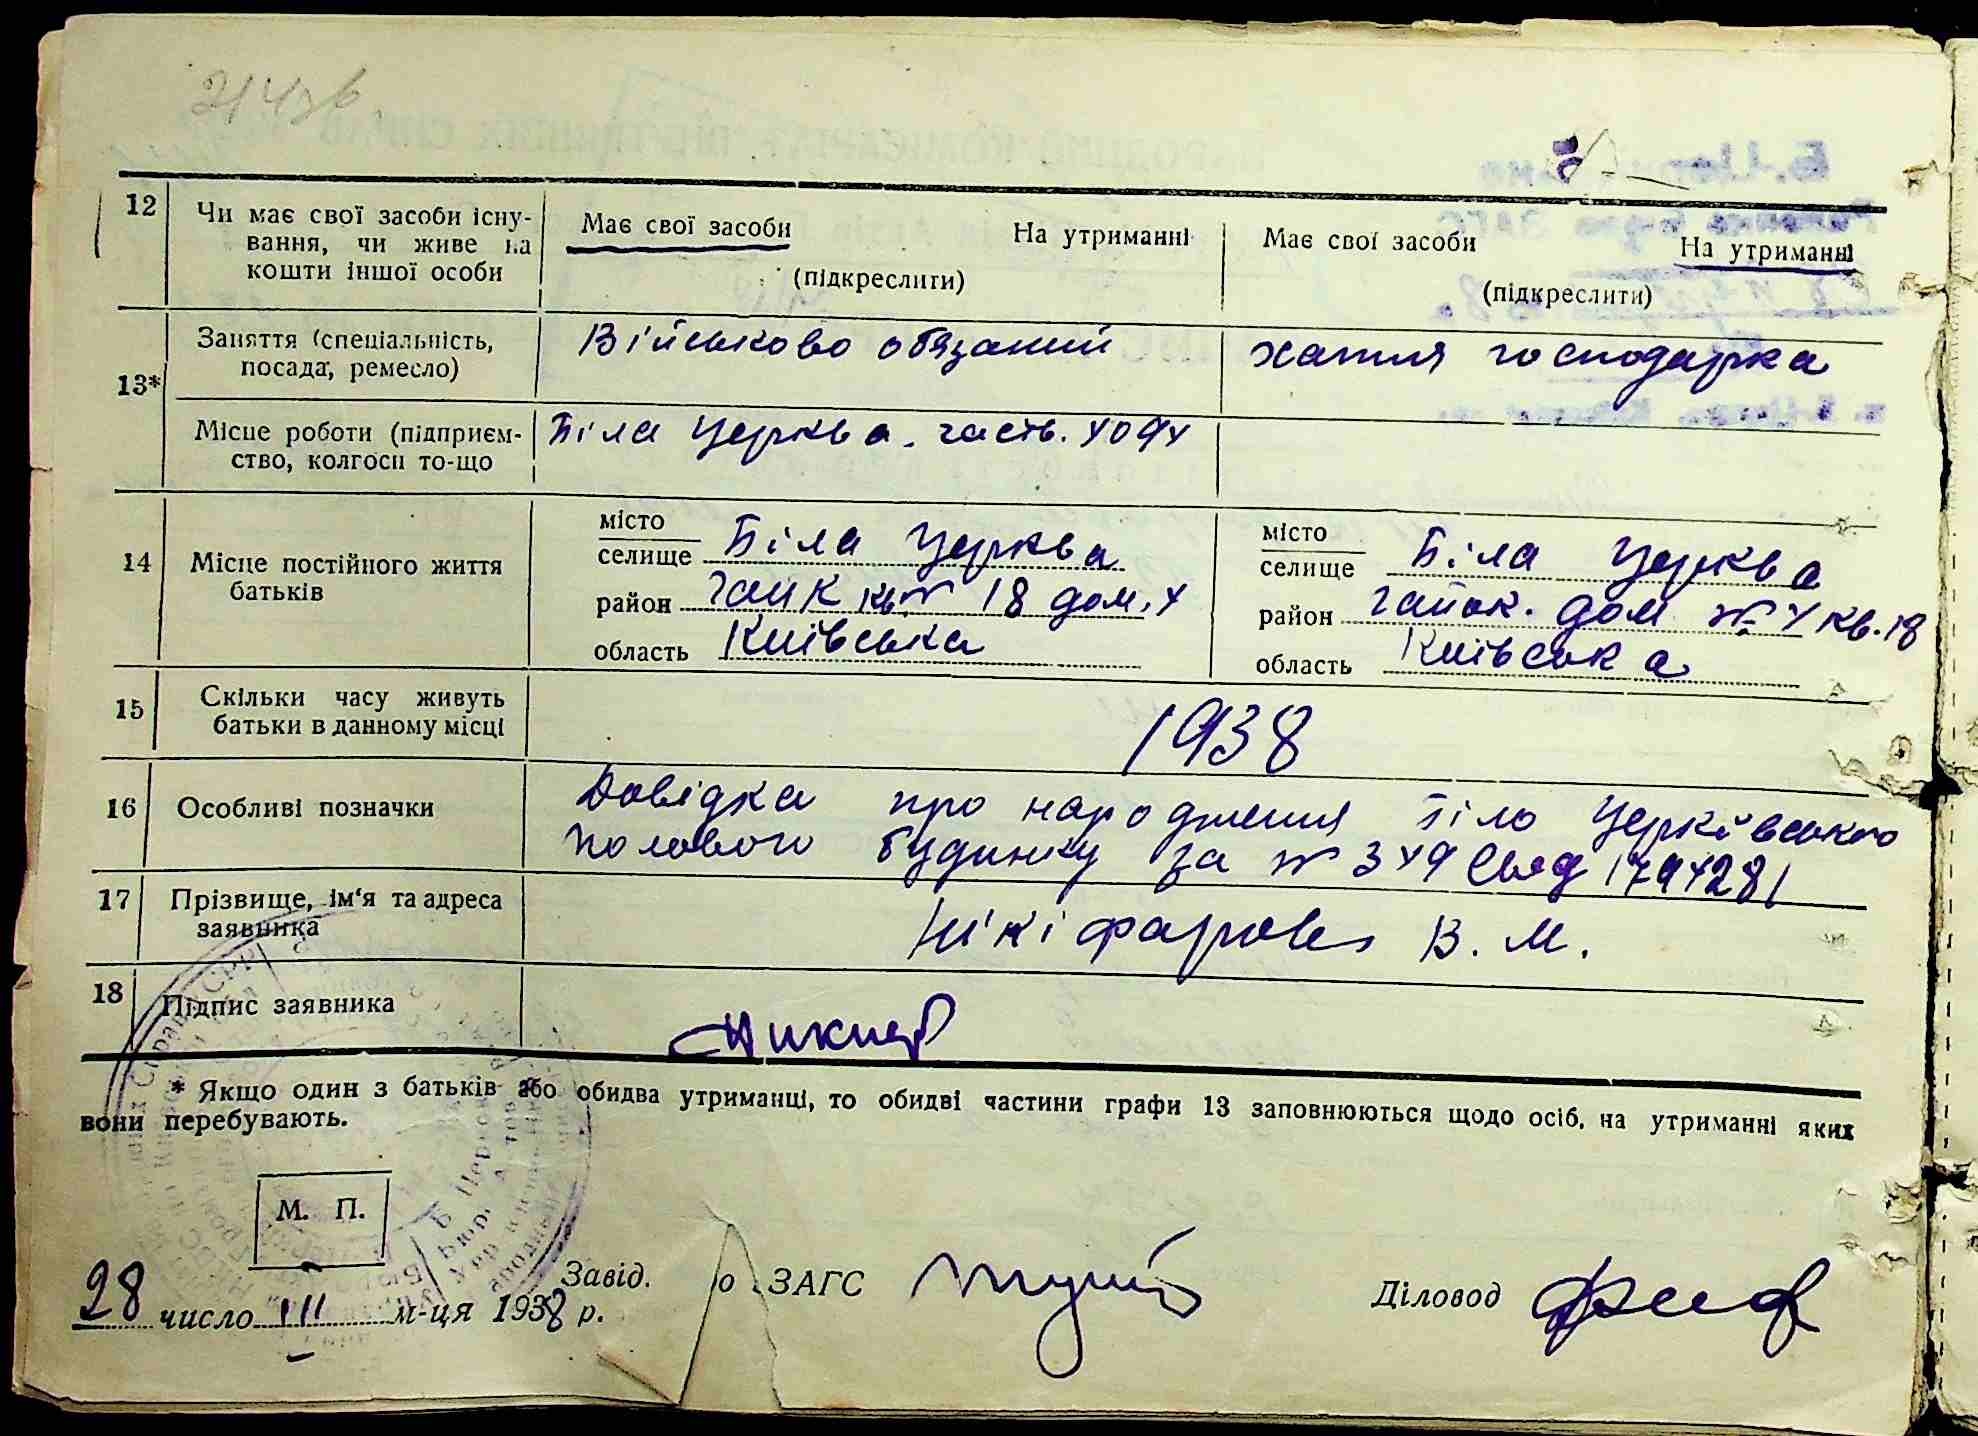 12
Чи має свої засоби існу-
вання, чи живе на
кошти іншої особи
Має свої засоби На утриманні
(підкреслити)
Має свої засоби На утриманні
(підкреслити)
13*
Заняття (спеціальність,
посада, ремесло)
Військово обязаний
хатня господарка
Місце роботи (підприєм-
ство, колгосп то-що
Біла Церква. часть. 4094
14
Місце постійного життя
батьків
місто
селище Біла Церква
район кв № 18 дом. 4
область Київська
місто
селище Біла Церква
район дом № 4 кв. 18
область Київська
15
Скільки часу живуть
батьки в данному місці
1938
16
Особливі позначки
Довідка про народження Біло Церківського
Полового будинку за № 349 1794281
17
Прізвище, ім'я та адреса
заявника
Нікіфаров В. М.
18
Підпис заявника
* Якщо один з батьків або обидва утриманці, то обидві частини графи 13 заповнюються щодо осіб, на утриманні яких
вони перебувають.
М. П.
Завід. ЗАГС
Діловод
28 число III м-ця 1938 р.